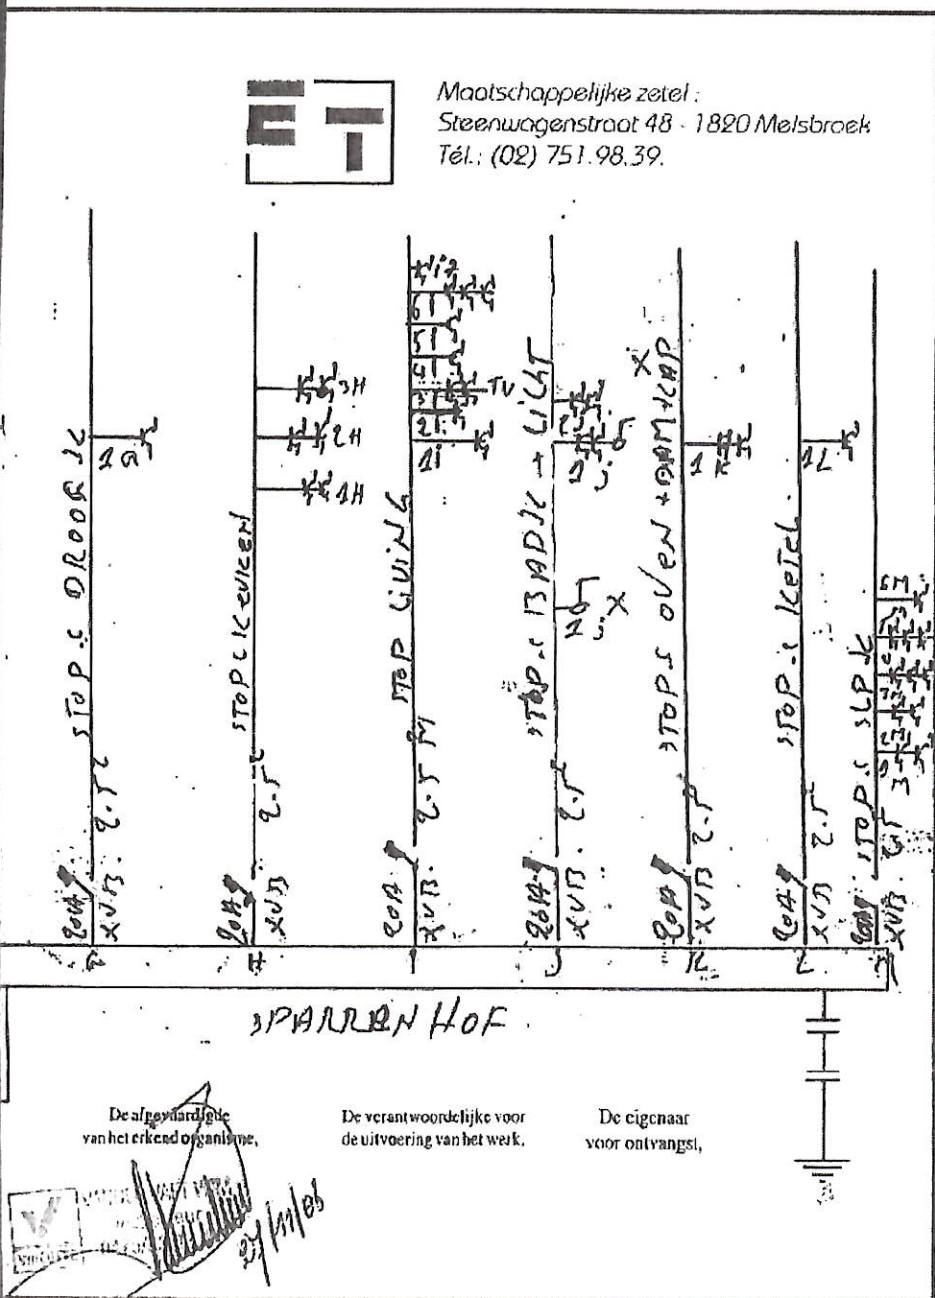 ET
Maatschappelijke zetel :
Steenwagenstraat 48 - 1820 Melsbroek
Tél.: (02) 751.98.39.
STOP.C DROOR K
1G
20A
XVB. 2.5²
STOPCKEUKEN
3H
2H
1H
20A
XVB 2.5²
H
STOP LIVING
7
6i
5i
4i
3i
TV
2i
1i
20A
XVB. 2.5 M
STOP.C BADK + LICHT
2j
1j
1j X
20A
XVB. 2.5²
J
STOPS OVEN + DAMKAP
X
1K
20A
XVB 2.5²
K
STOP.C KETEL
1L
20A
XVB 2.5²
L
STOP.C SLPK
5M
20A
XVB. 2.5
SPARREN HOF.
De afgevaardigde
van het erkend organisme,
De verantwoordelijke voor
de uitvoering van het werk,
De eigenaar
voor ontvangst,